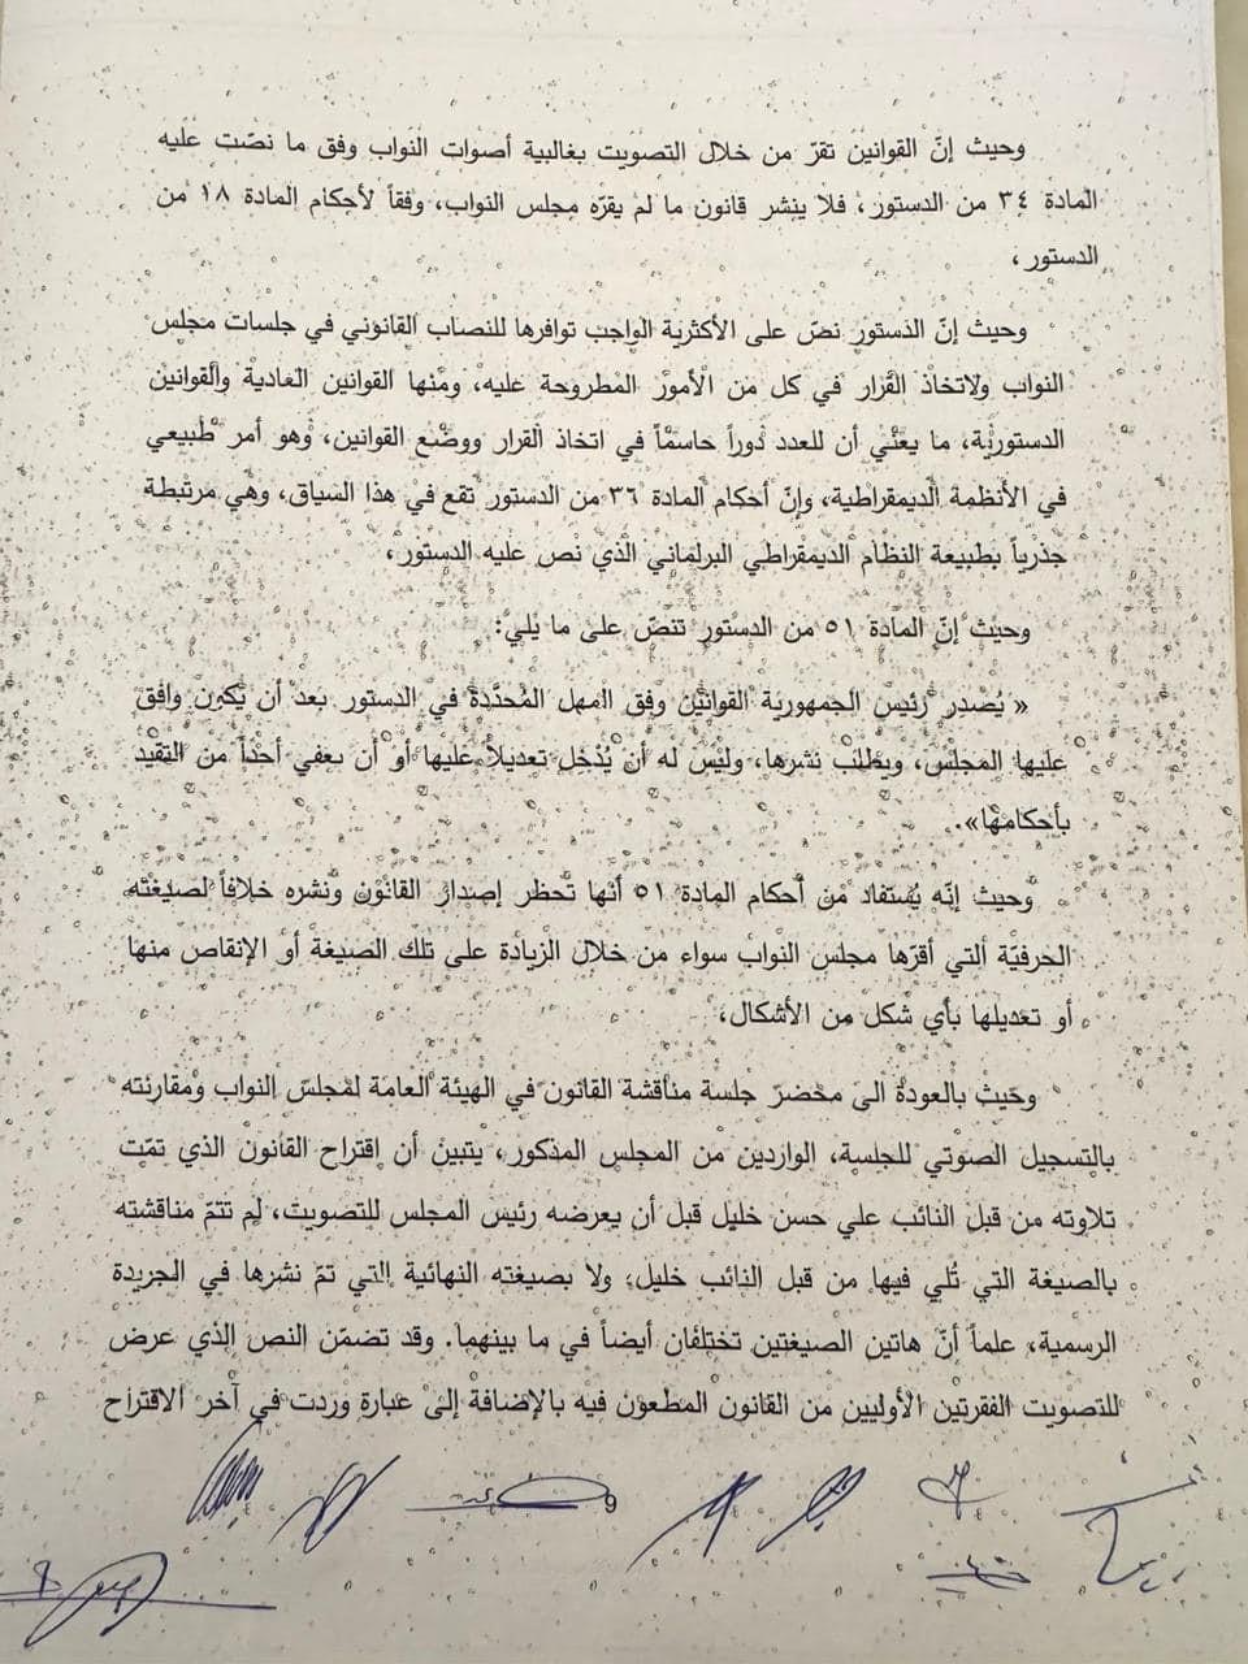 وحيث إنّ القوانين تقرّ من خلال التصويت بغالبية أصوات النواب وفق ما نصّت عليه
المادة ٣٤ من الدستور، فلا ينشر قانون ما لم يقرّه مجلس النواب، وفقاً لأحكام المادة ١٨ من
الدستور،
وحيث إنّ الدستور نصّ على الأكثرية الواجب توافرها للنصاب القانوني في جلسات مجلس
النواب ولاتخاذ القرار في كل من الأمور المطروحة عليه، ومنها القوانين العادية والقوانين
الدستورية، ما يعني أن للعدد دوراً حاسماً في اتخاذ القرار ووضع القوانين، وهو أمر طبيعي
في الأنظمة الديمقراطية، وإنّ أحكام المادة ٣٦ من الدستور تقع في هذا السياق، وهي مرتبطة
جذرياً بطبيعة النظام الديمقراطي البرلماني الذي نص عليه الدستور،
وحيث إنّ المادة ٥١ من الدستور تنصّ على ما يلي:
« يُصدر رئيس الجمهورية القوانين وفق المهل المُحدّدة في الدستور بعد أن يكون وافق
عليها المجلس، ويطلب نشرها، وليس له أن يُدخل تعديلاً عليها أو أن يعفي أحداً من التقيد
بأحكامها».
وحيث إنّه يُستفاد من أحكام المادة ٥١ أنها تحظر إصدار القانون ونشره خلافاً لصيغته
الحرفيّة التي أقرّها مجلس النواب سواء من خلال الزيادة على تلك الصيغة أو الإنقاص منها
أو تعديلها بأي شكل من الأشكال،
وحيث بالعودة الى محضر جلسة مناقشة القانون في الهيئة العامة لمجلس النواب ومقارنته
بالتسجيل الصوتي للجلسة، الواردين من المجلس المذكور، يتبين أن اقتراح القانون الذي تمّت
تلاوته من قبل النائب علي حسن خليل قبل أن يعرضه رئيس المجلس للتصويت، لم تتمّ مناقشته
بالصيغة التي تُلي فيها من قبل النائب خليل؛ ولا بصيغته النهائية التي تمّ نشرها في الجريدة
الرسمية، علماً أنّ هاتين الصيغتين تختلفان أيضاً في ما بينهما. وقد تضمّن النص الذي عرض
للتصويت الفقرتين الأوليين من القانون المطعون فيه بالإضافة إلى عبارة وردت في آخر الاقتراح
9